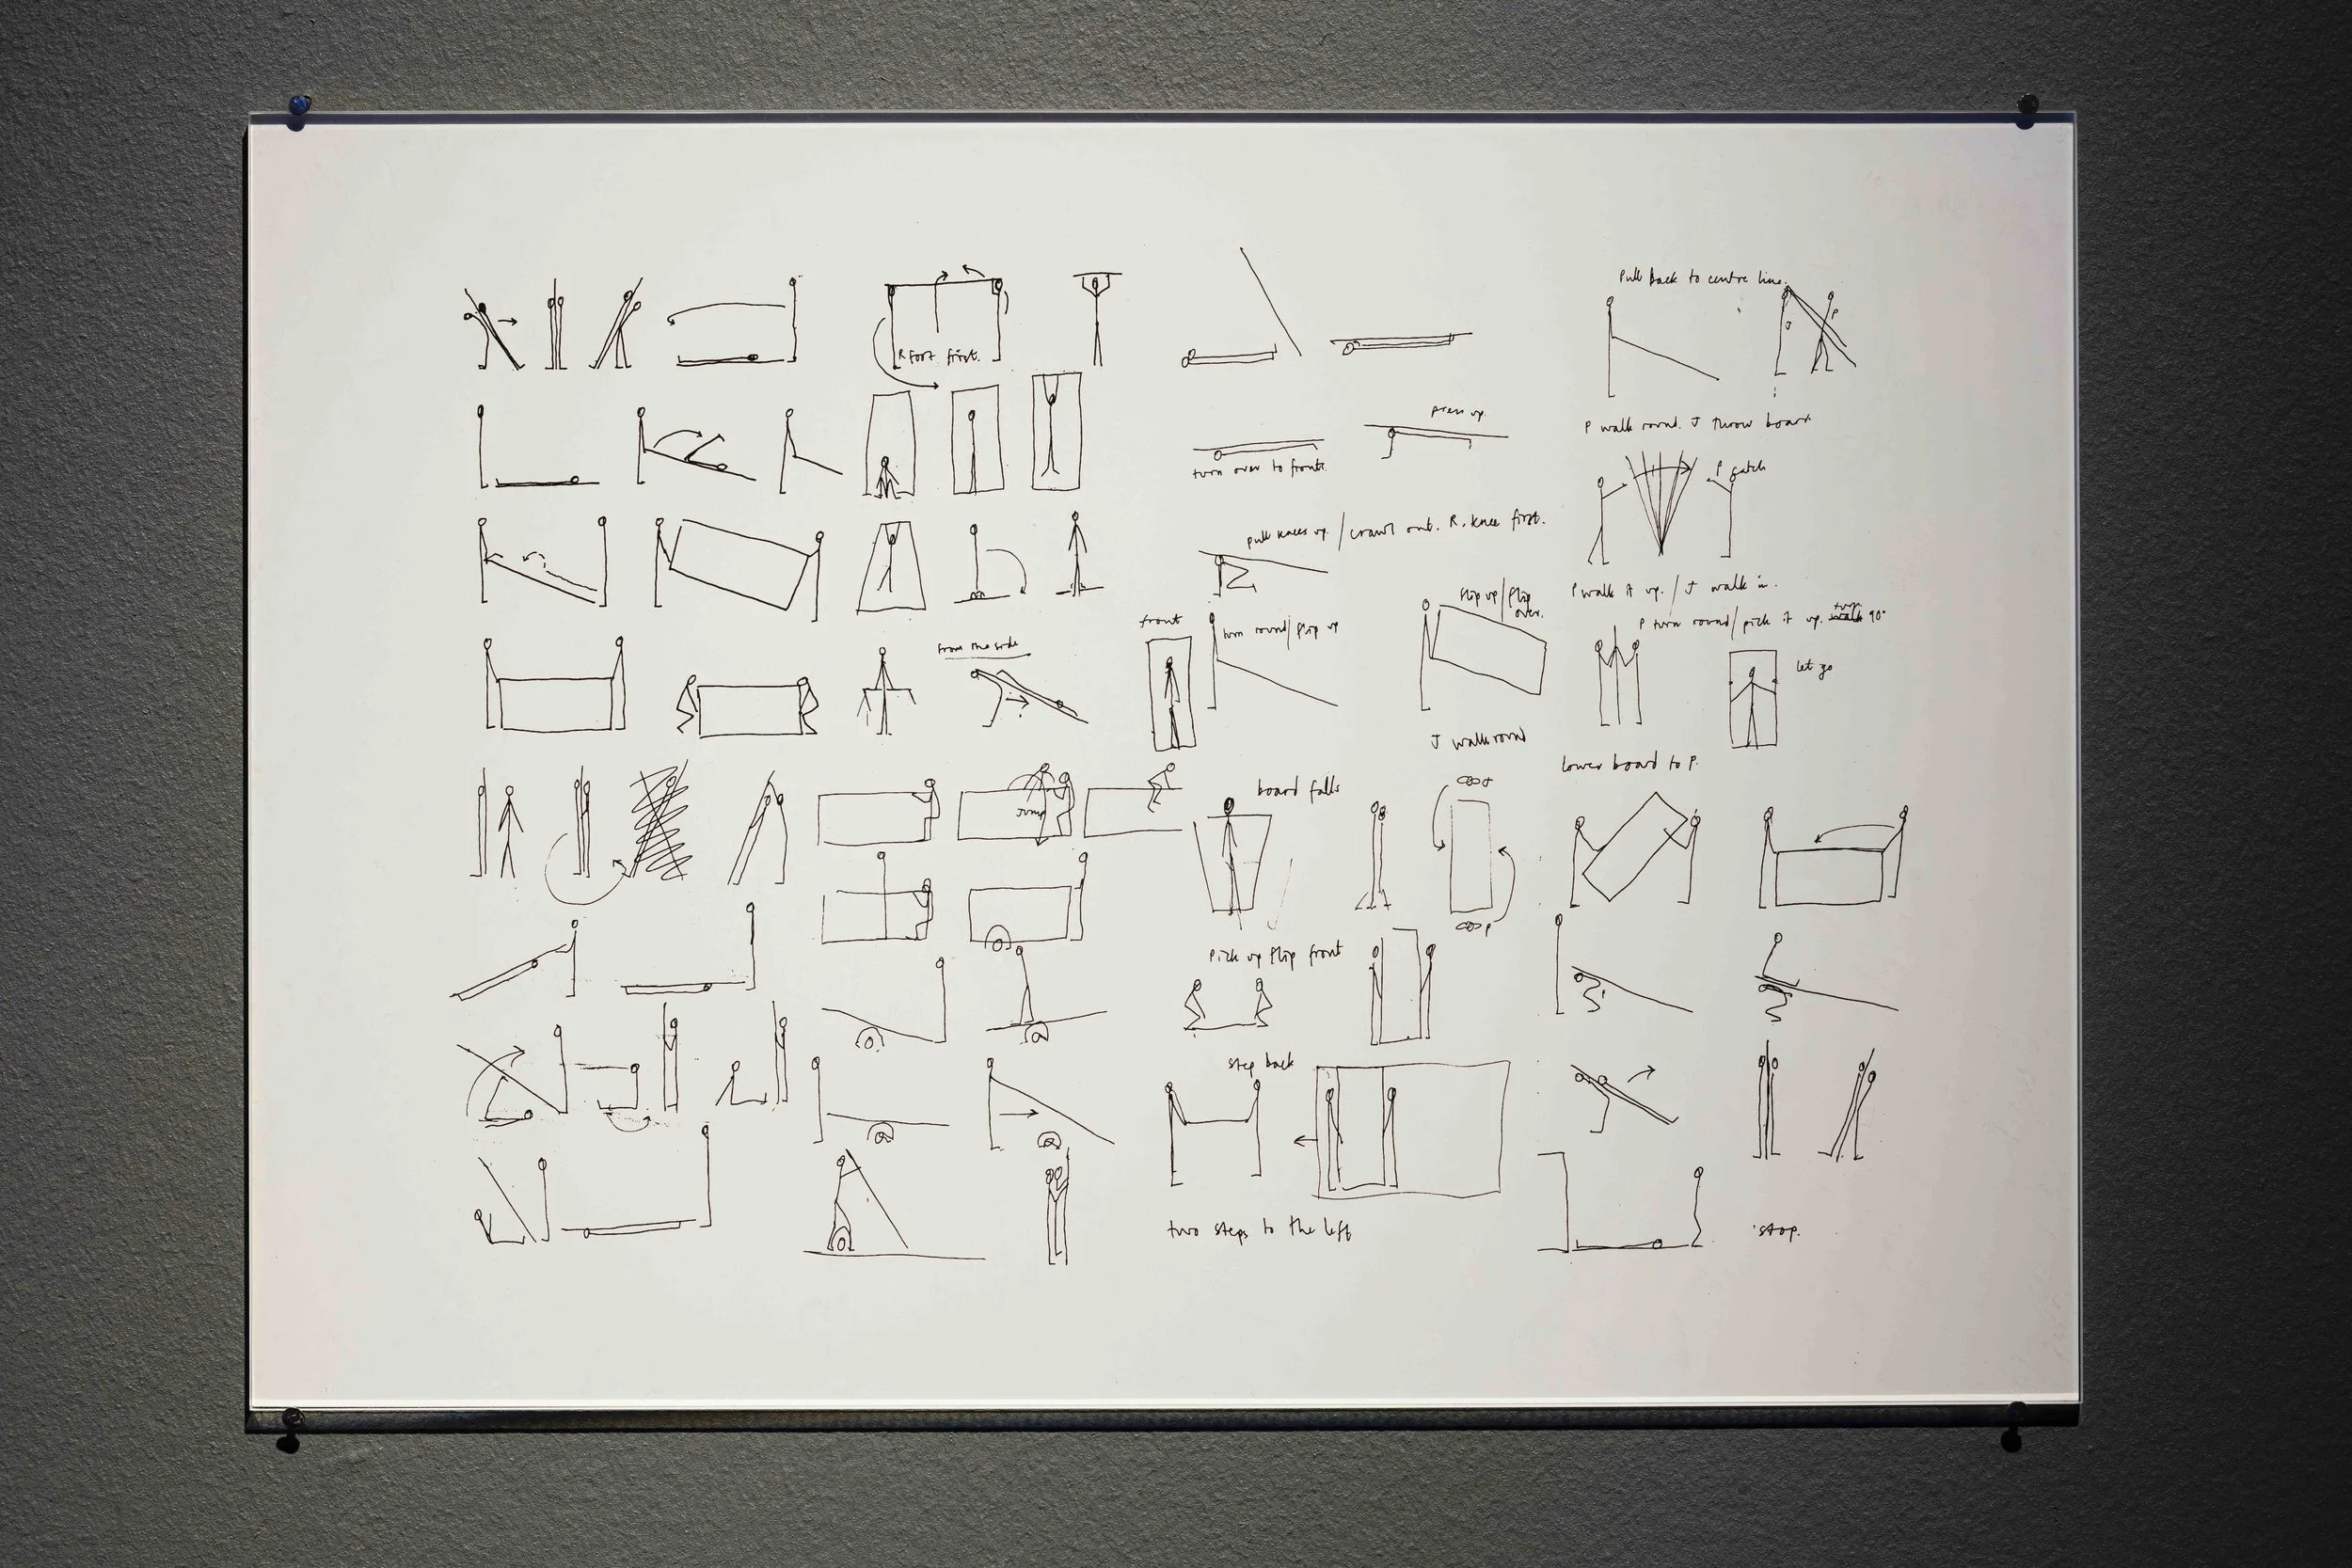 R foot first.
from the side
Jump
press up.
turn over to front.
pull knees up / crawl out. R. knee first.
front
turn round/flip up
flip up/flip
over.
J walk round
board falls
J
P
Pick up flip front
step back
two steps to the left
Pull back to centre line.
J
P
P walk round. J throw board
P catch
P walk it up. / J walk in.
P turn round/pick it up. turn 90°
let go
lower board to P.
stop.